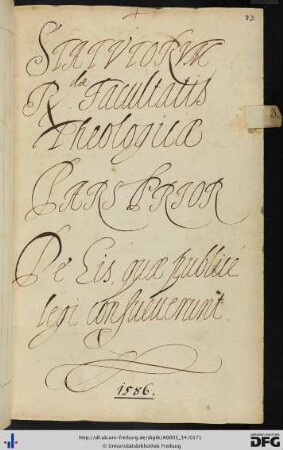 83
STATVTORVM
R.dæ Facultatis
Theologicæ
PARS PRIOR
De Eis, quæ publicè
legi consueuerunt.
1586.
http://dl.ub.uni-freiburg.de/diglit/A0001_34/0171
© Universitätsbibliothek Freiburg
gefördert durch die
DFG